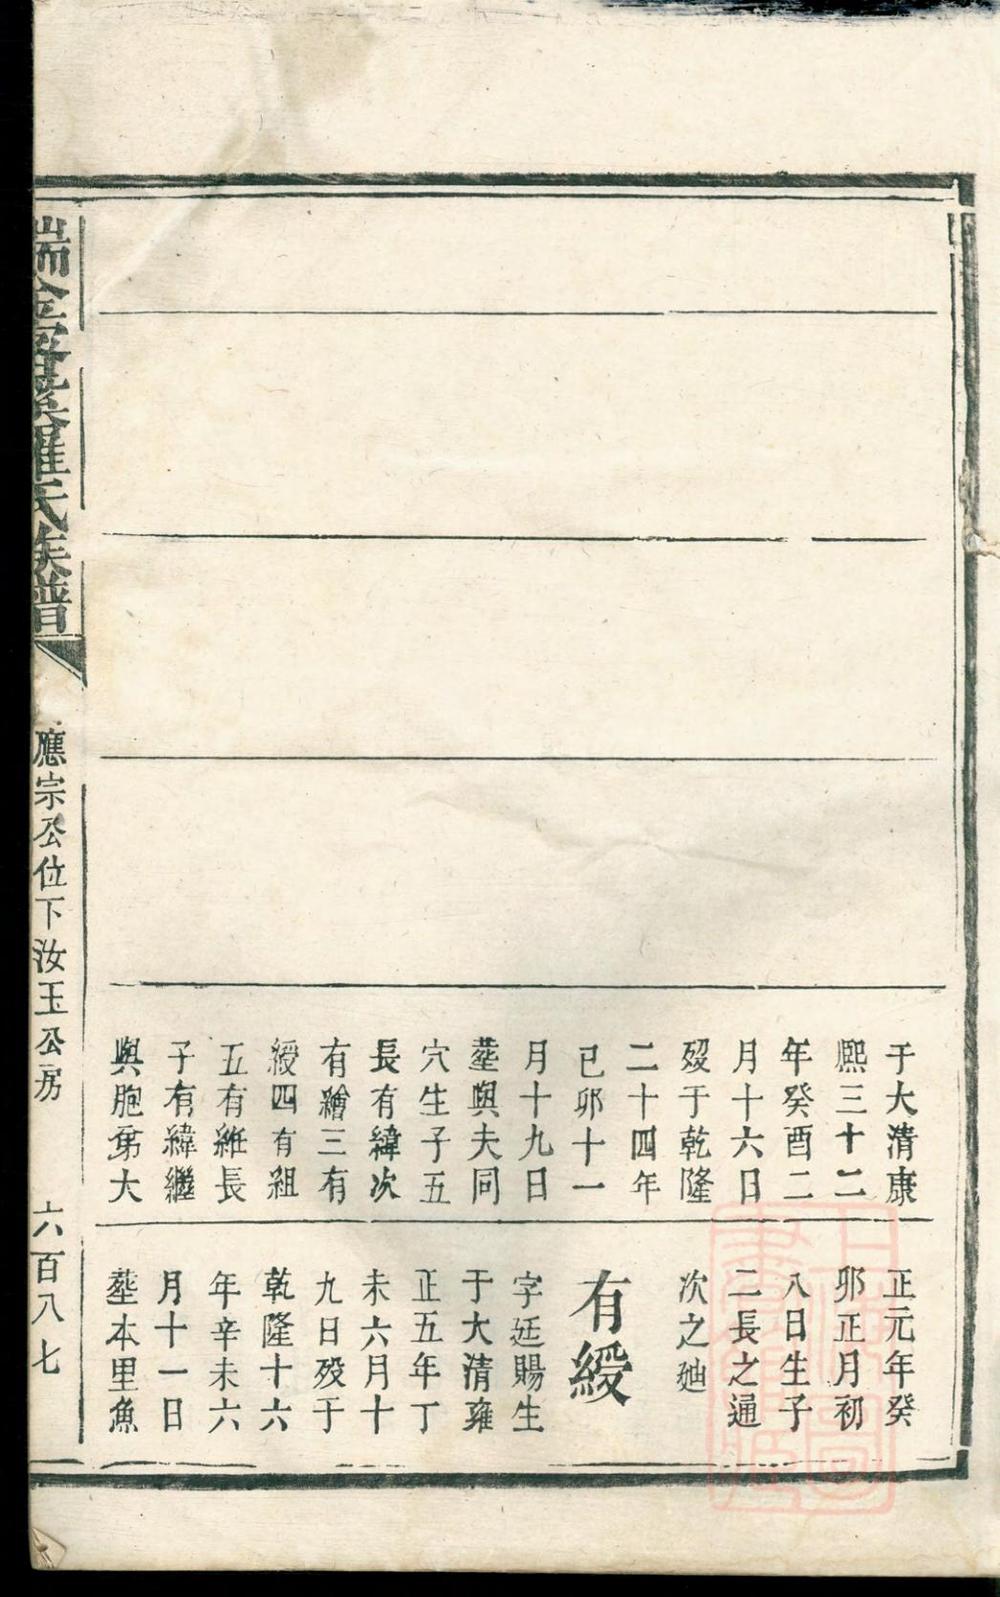 于大清康
熙三十二
年癸酉二
月十六日
歿于乾隆
二十四年
己卯十一
月十九日
塟與夫同
穴生子五
長有緯次
有繪三有
綬四有組
五有維長
子有緯繼
與胞弟大
正元年癸
卯正月初
八日生子
二長之通
次之廸
有綬
字廷賜生
于大清雍
正五年丁
未六月十
九日歿于
乾隆十六
年辛未六
月十一日
塟本里魚
羅氏族譜
應宗公位下汝玉公房
六百八七